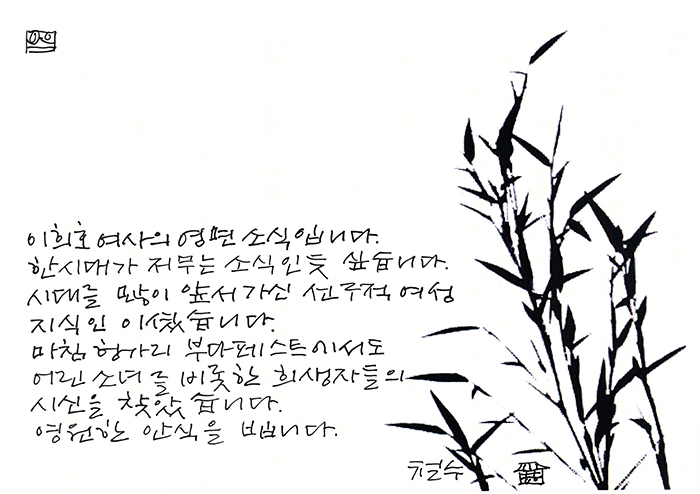 이희호 여사의 영면 소식입니다.
한시대가 저무는 소식인듯 싶습니다.
시대를 많이 앞서가신 선구적 여성
지식인 이셨습니다.
마침 헝가리 부다페스트에서도
어린 소녀를 비롯한 희생자들의
시신을 찾았습니다.
영원한 안식을 빕니다.
철수